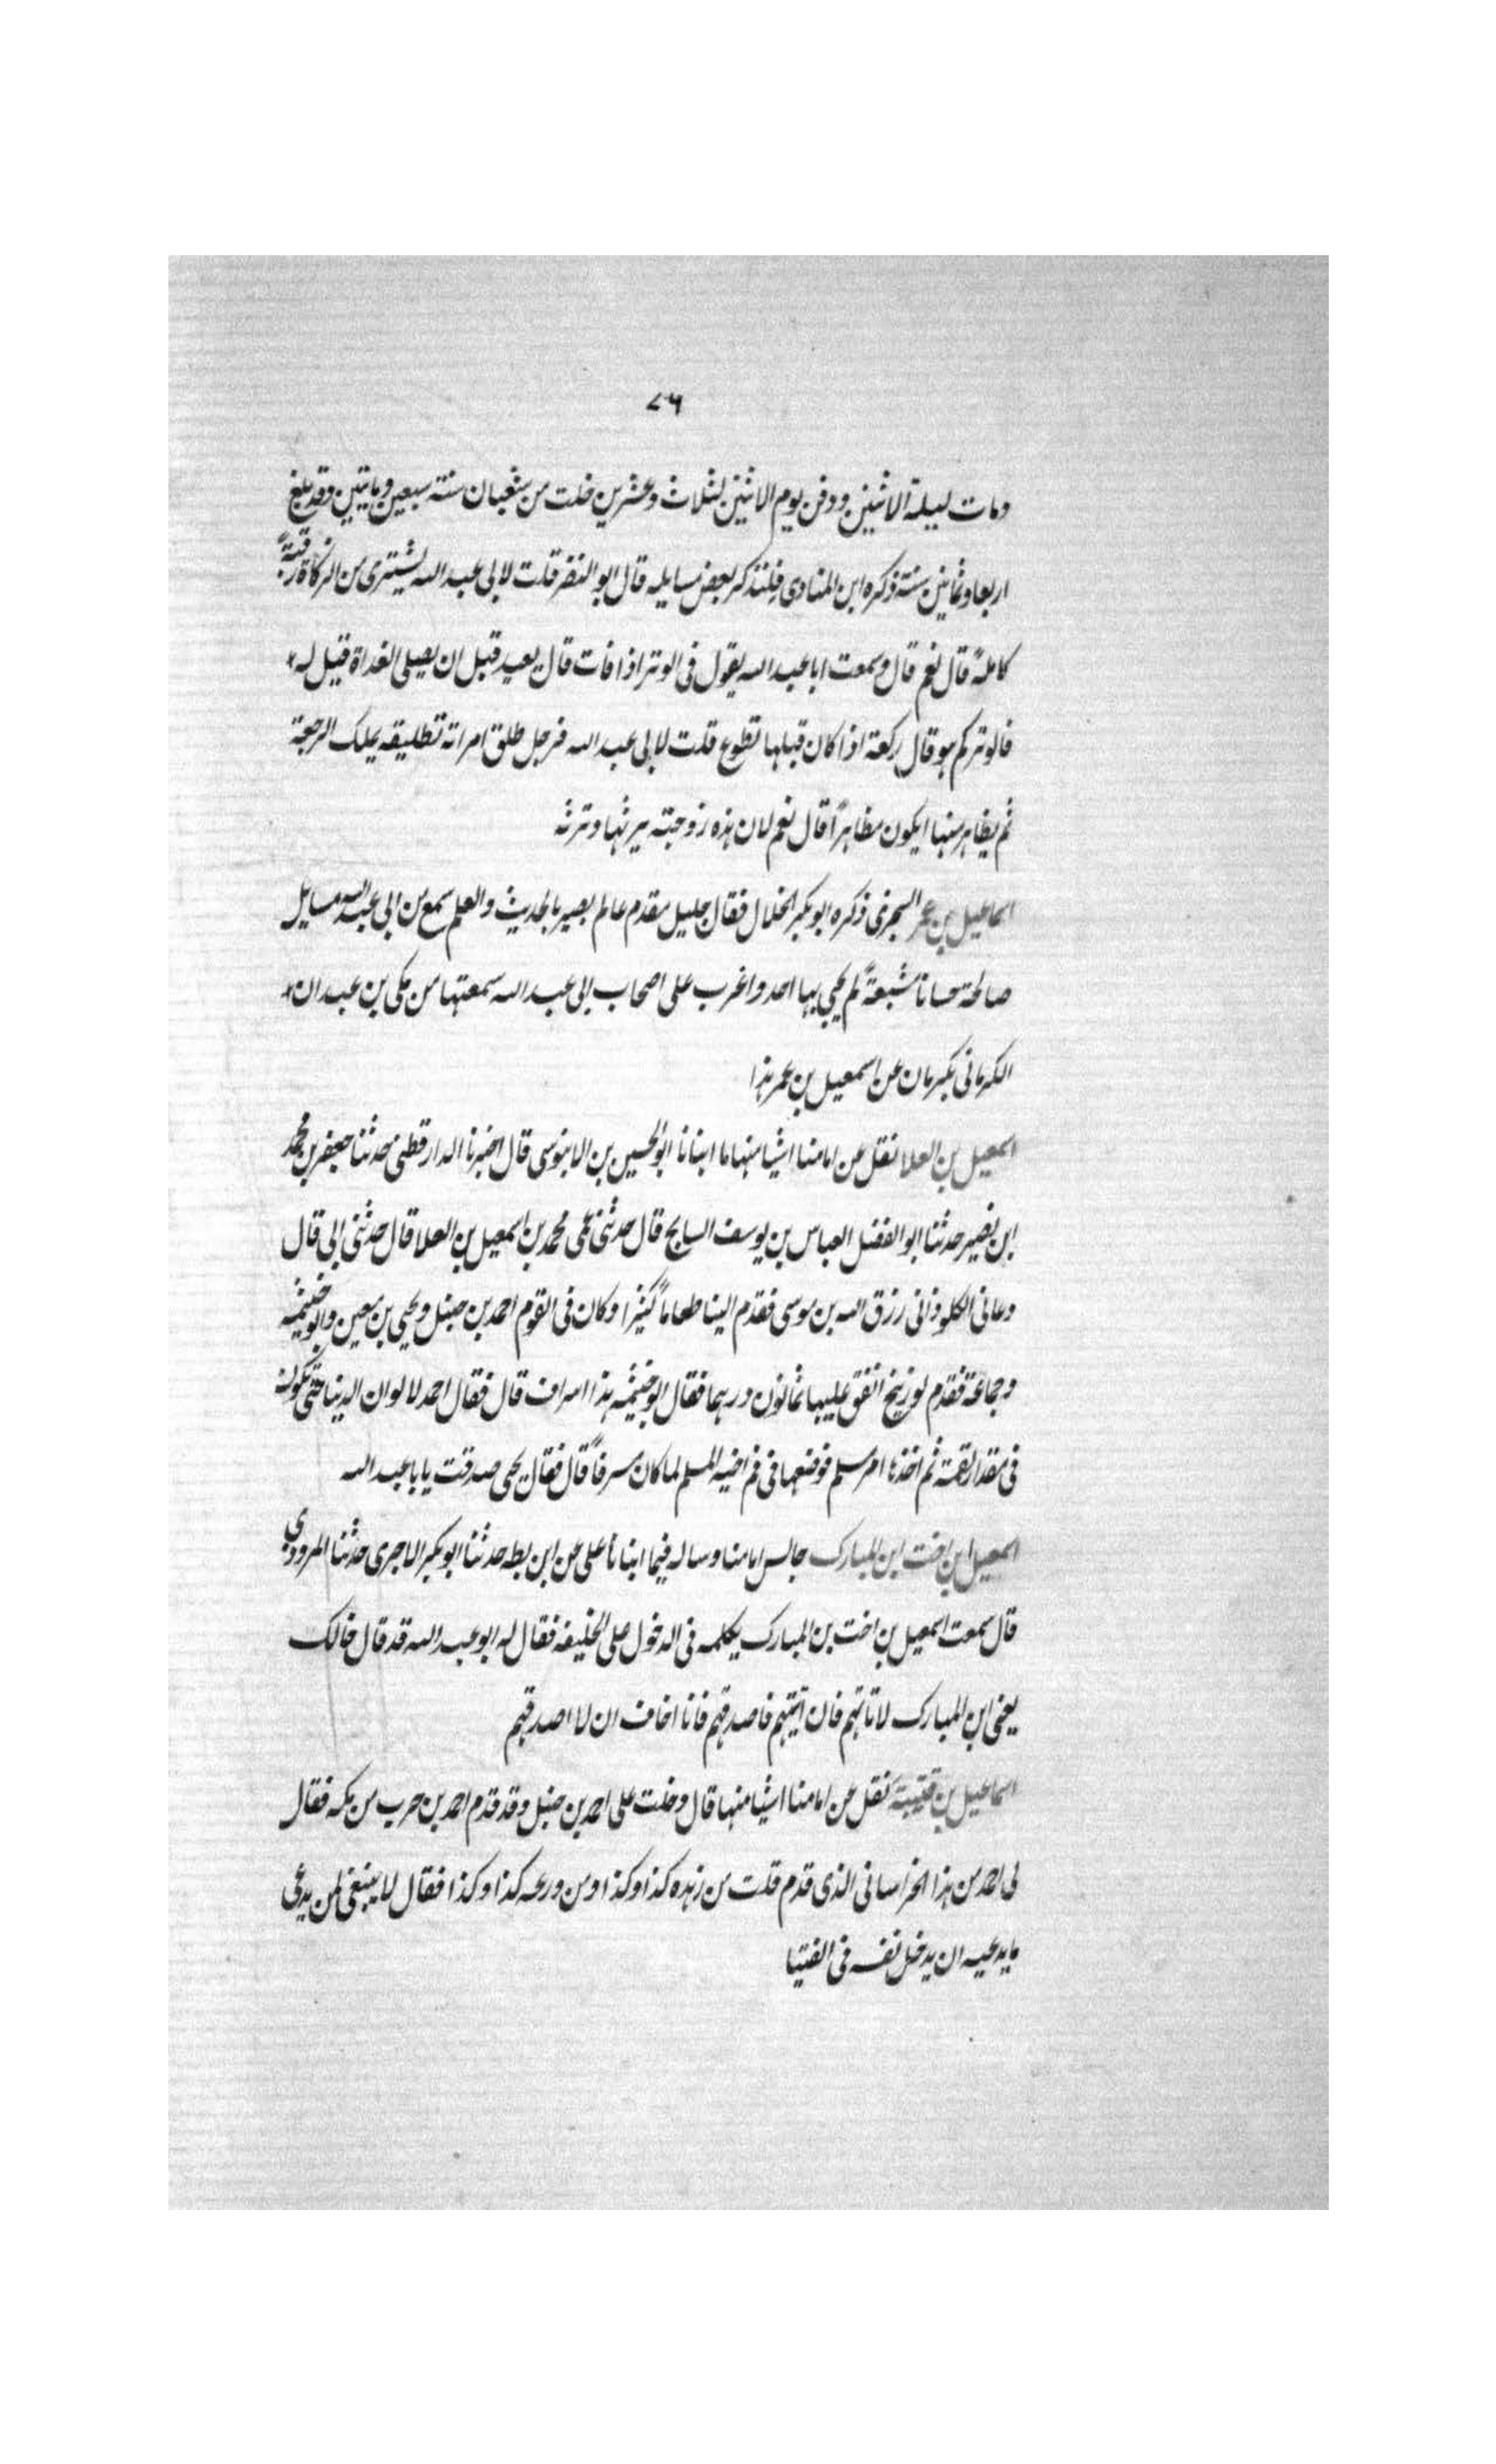 ٧٦
ومات ليلة الاثنين ودفن يوم الاثنين لثلاث وعشرين خلت من شعبان سنة سبعين ومايتين وقد بلغ
اربعا وثمانين سنة ذكره ابن المنادى فلنذكر بعض مسايله قال ابو النضر قلت لابى عبد الله يشترى من الزكاة رقبةً
كاملةً قال نعم قال وسمعت ابا عبد الله يقول فى الوتر اذا فات قال يعيد قبل ان يصلى الغداة قيل له
فالوتر كم هو قال ركعة اذا كان قبلها تطوع قلت لابى عبد الله فرجل طلق امراته تطليقه يملك الرجعة
ثم يظاهر منها ايكون مظاهراً قال نعم لان هذه زوجته يرثها وترثه
اسماعيل بن عمر السجزى ذكره ابو بكر الخلال فقال جليل مقدم عالم بصير بالحديث والعلم سمع من ابى عبد الله مسايل
صالحة حسانا مشبعةً لم يجى بها احد واغرب على اصحاب ابى عبد الله سمعتها من مكى بن عبدان
الكرمانى بكرمان عن اسمعيل بن عمر هذا
اسمعيل بن العلا نقل عن امامنا اشيا منها ما انبانا ابو الحسين بن الابنوسى قال اخبرنا الدارقطنى حدثنا جعفر بن محمد
ابن نصير حدثنا ابو الفضل العباس بن يوسف السايح قال حدثنى عمى محمد بن اسمعيل بن العلا قال حدثنى ابى قال
دعانى الكلوذانى رزق الله بن موسى فقدم الينا طعاماً كثيرا وكان فى القوم احمد بن حنبل ويحيى بن معين وابو خيثمه
وجماعة فقدم لوزينج انفق عليها ثمانون درهما فقال ابو خيثمه هذا اسراف قال فقال احمد لا لو ان الدنيا حتى تكون
فى مقدار لقمة ثم اخذها امر مسلم فوضعها فى فم اخيه المسلم لما كان مسرفاً قال فقال يحيى صدقت يا با عبد الله
اسمعيل ابن اخت ابن المبارك جالس امامنا وساله فيما انبانا على عن ابن بطه حدثنا ابو بكر الاجرى حدثنا المروودي
قال سمعت اسمعيل بن اخت بن المبارك يكلمه فى الدخول على الخليفه فقال له ابو عبد الله قد قال خالك
يعنى ابن المبارك لا تاتهم فان اتيتهم فاصدقهم فانا اخاف ان لا اصدقهم
اسماعيل بن قتيبة نقل عن امامنا اشيا منها قال دخلت على احمد بن حنبل وقد قدم احمد بن حرب من مكه فقال
لى احمد من هذا الخراسانى الذى قدم قلت من زهده كذا وكذا ومن ورعه كذا وكذا فقال لا ينبغى لمن يدعى
ما يدعيه ان يدخل نفسه فى الفتيا